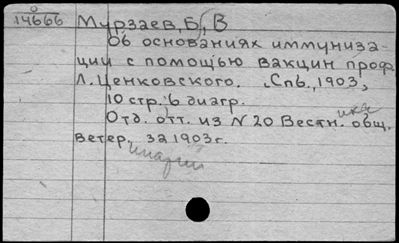 14666 Мурзаев, Б, В
Об основаниях иммуниза-
ции с помощью вакцин проф
Л. Ценковского. Спб., 1903,
10 стр; 6 диагр.
Отд. отт. из N 20 Вестн. общ.
ветер, за 1903г.